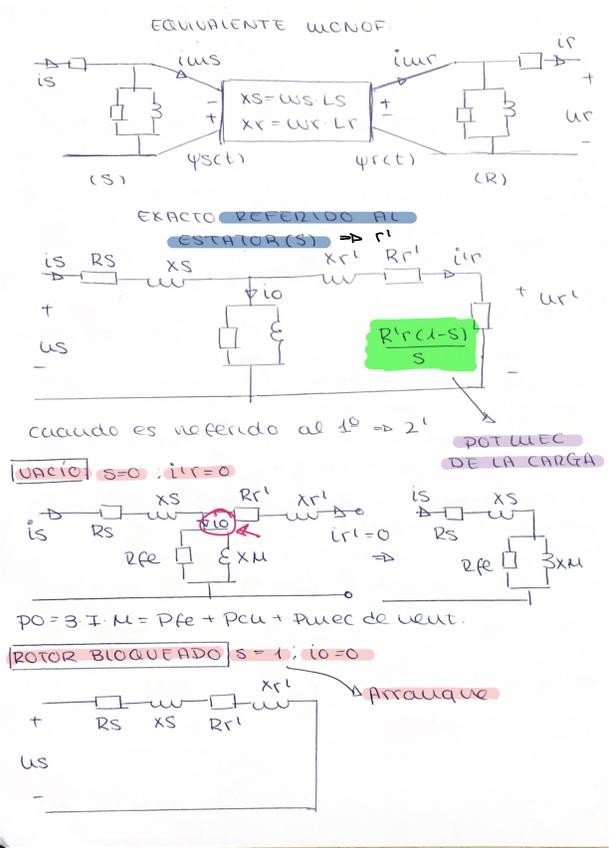 EQUIVALENTE MONOF.
is
ims
imr
ir
XS = WS · LS
Xr = Wr · Lr
- +
+ -
+ ur -
ψs(t)
ψr(t)
(S)
(R)
EXACTO REFERIDO AL
ESTATOR(S) ⇒ r'
is RS XS Xr' Rr' i'r
io
+ us -
+ ur' -
R'r(1-S)
S
cuando es referido al 1º ⇒ 2'
POT MEC
DE LA CARGA
VACÍO: S=0; i'r=0
is RS XS Rr' Xr'
io
Rfe XM
ir'=0
⇒
is RS XS
Rfe XM
PO = 3·I·M = Pfe + Pcu + Pmec de vent.
ROTOR BLOQUEADO S=1; io=0
Arranque
+ us -
RS XS Rr' Xr'